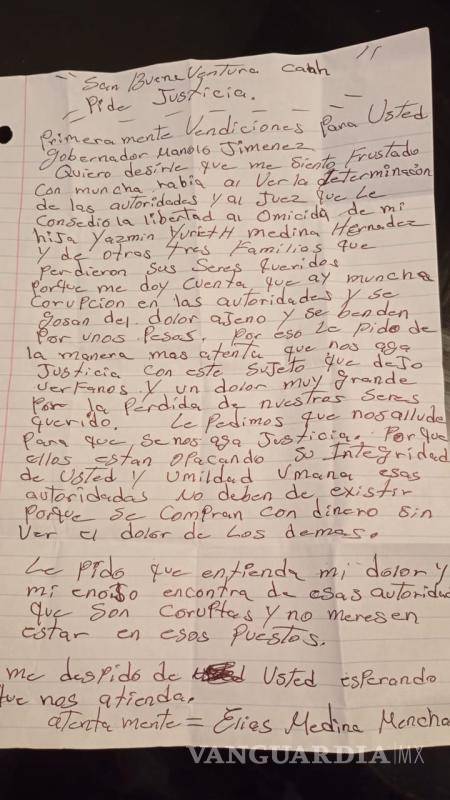 San BuenaVentura cah
Pide Justicia.
Primera mente Vendiciones Para Usted
Gobernador Manolo Jimenez
Quiero desirle que me siento Frustado
Con muncha rabia al Ver la determinación
de las autoridades y al Juez que Le
Consedio la libertad al Omicida de mi
hija Yazmin Yurieth medina Hernadez
y de otros tres Familios que
Perdieron sus Seres queridos
Porque me doy cuenta que ay muncha
Corupcion en las autoridades y se
gosan del dolor ajeno y se benden
Por unos Pesos. Por eso Le Pido de
la manera mas atenta que nos aga
Justicia con este sujeto que dejo
uerfanos y un dolor muy grande
Por la Perdida de nuestras Seres
querido. Le Pedimos que nos allude
Para que se nos aga Justicia. Porque
ellos estan oPacando su Integridad
de Usted y Umildad Umana esas
autoridadas No deben de existir
Porque se Compran con dinero sin
Ver el dolor de Los demas.
Le Pido que entienda mi dolor y
mi enojo encontra de esas autoridad
que son Coruptas y no meresen
estar en esos Puestos.
me despido de Usted esperando
que nos atienda.
atenta mente = Elias Medina Mencha
VANGUARDIA|MX